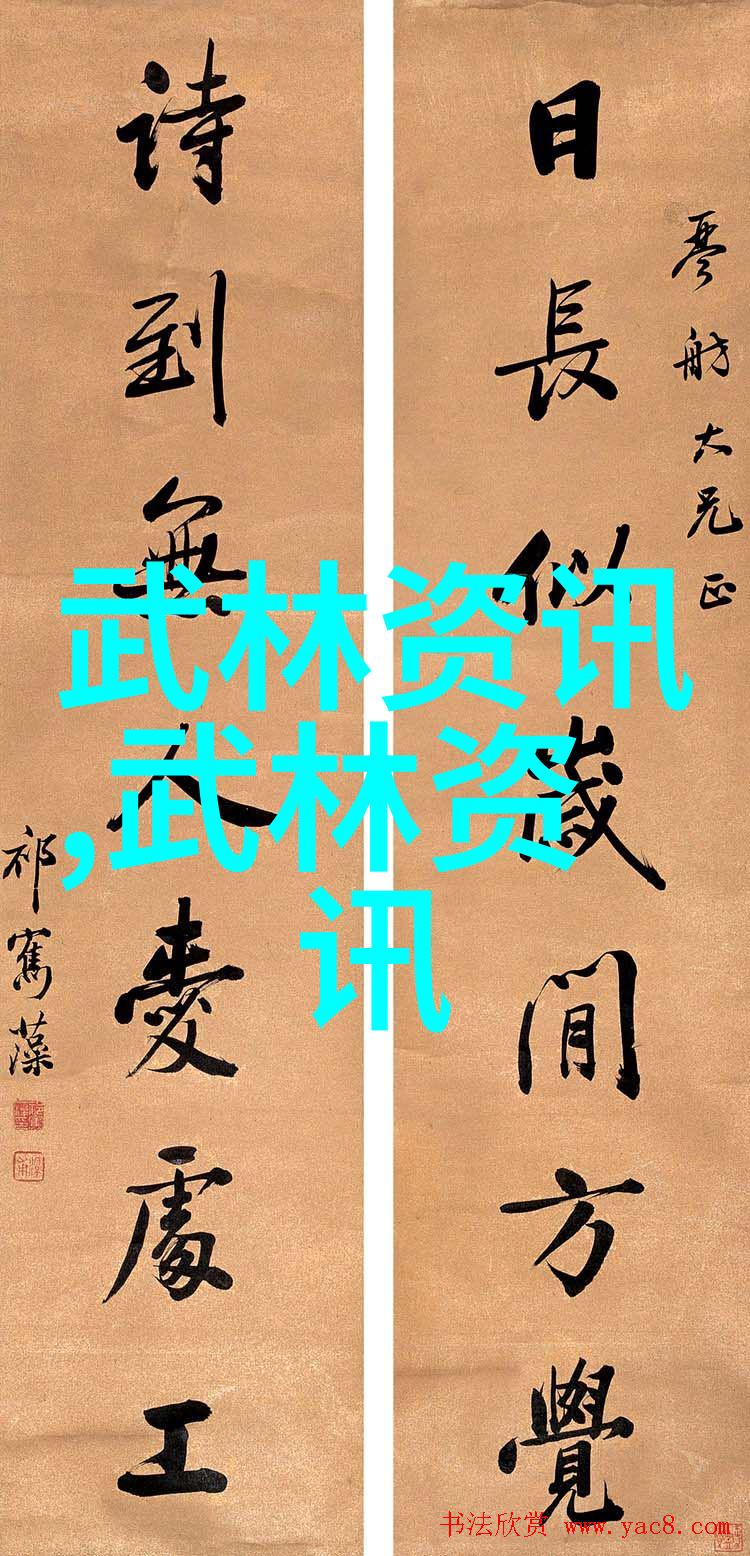 日長似歲閒方覺
琴舫大兄正
詩到無人愛處工
祁寯藻
武林资讯
,武林资
讯
书法欣赏 www.yac8.com